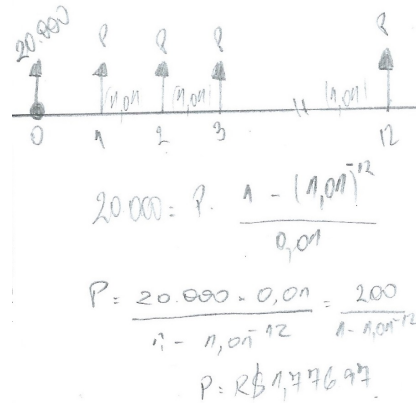 20.000 P P P P
(1,01) (1,01) (1,01)
0 1 2 3 12
20.000 = P . 1 - (1,01)^-12
0,01
P = 20.000 . 0,01 = 200
1 - 1,01^-12 1 - 1,01^-12
P = R$ 1,77697